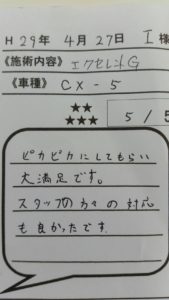 H 29年 4月 27日 I 様
《施術内容》エクセレントG
《車種》 CX-5
★★
★★★
5 / 5
ピカピカにしてもらい
大満足です。
スタッフの方々の対応
も良かったです